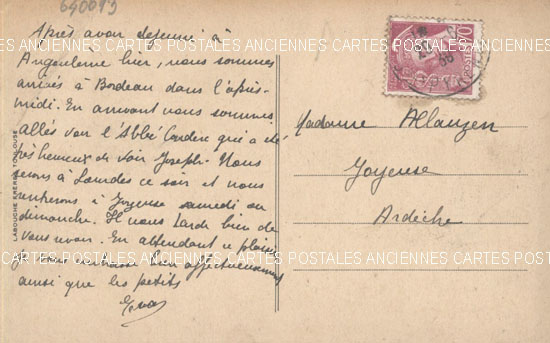 640093
Après avoir dejeuné à
Angouleme hier, nous sommes
arrivés à Bordeau dans l'après-
midi. En arrivant nous sommes
allés voir l'Abbé qui a été
très heureux de voir Joseph. Nous
serons à Lourdes ce soir et nous
rentrerons à Joyeuse samedi ou
dimanche. Il nous tarde bien de
vous revoir. En attendant ce plaisir
je vous bien affectueusement
ainsi que les petits
LABOUCHE FRERES TOULOUSE
POSTES
Madame Allauzen
Joyeuse
Ardèche
CARTES POSTALES ANCIENNES CARTES POSTALES ANCIENNES CARTES POSTALES
POSTALES ANCIENNES CARTES POSTALES ANCIENNES CARTES POSTALES ANCIENNES
CARTES POSTALES ANCIENNES CARTES POSTALES ANCIENNES CARTES POSTALES